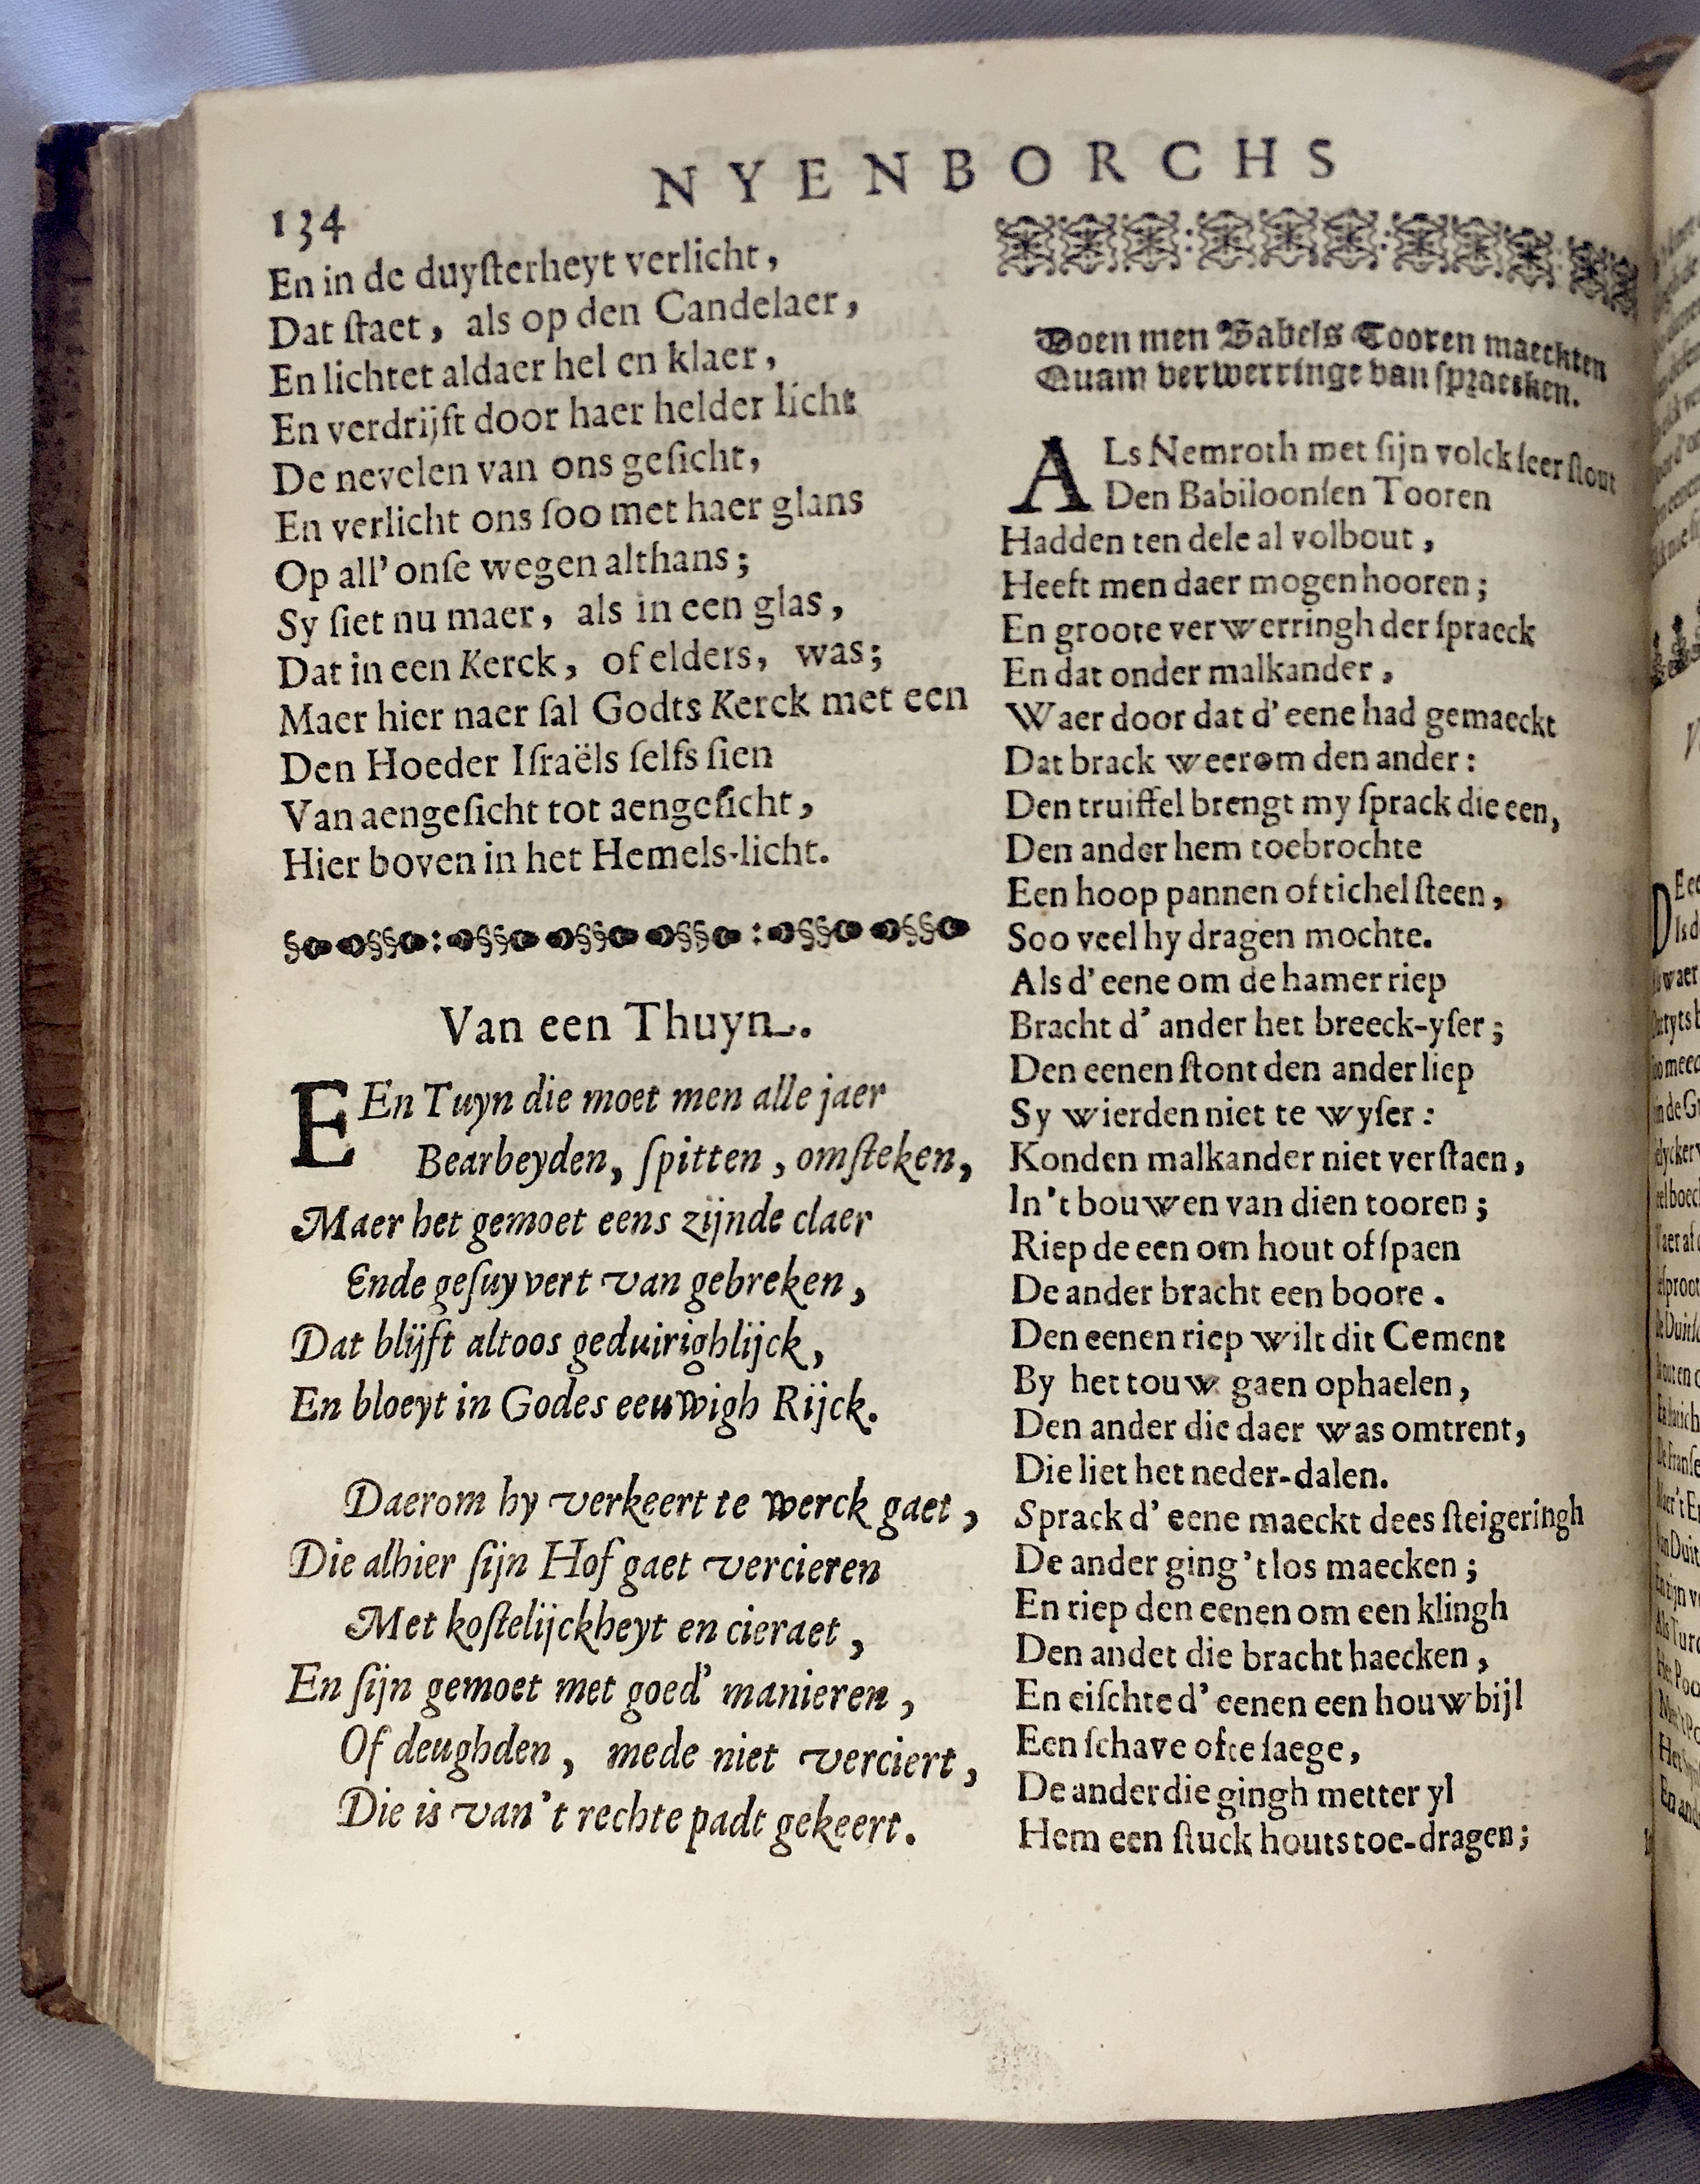 134
NYENBORCHS
En in de duyſterheyt verlicht,
Dat ſtaet, als op den Candelaer,
En lichtet aldaer hel en klaer,
En verdrijft door haer helder licht
De nevelen van ons geſicht,
En verlicht ons ſoo met haer glans
Op all' onſe wegen althans;
Sy ſiet nu maer, als in een glas,
Dat in een Kerck, of elders, was;
Maer hier naer ſal Godts Kerck met een
Den Hoeder Iſraëls ſelfs ſien
Van aengeſicht tot aengeſicht,
Hier boven in het Hemels-licht.
Van een Thuyn.
EEn Tuyn die moet men alle jaer
Bearbeyden, ſpitten, omſteken,
Maer het gemoet eens zijnde claer
Ende geſuyvert van gebreken,
Dat blijft altoos geduirighlijck,
En bloeyt in Godes eeuwigh Rijck.
Daerom hy verkeert te werck gaet,
Die alhier ſijn Hof gaet vercieren
Met koſtelijckheyt en cieraet,
En ſijn gemoet met goed' manieren,
Of deughden, mede niet verciert,
Die is van't rechte padt gekeert.
Doen men Babels Tooren maeckten
Quam verwerringe van ſpraecken.
ALs Nemroth met ſijn volck ſeer ſtout
Den Babiloonſen Tooren
Hadden ten dele al volbout,
Heeft men daer mogen hooren;
En groote verwerringh der ſpraeck
En dat onder malkander,
Waer door dat d'eene had gemaeckt
Dat brack weerom den ander:
Den truiffel brengt my ſprack die een,
Den ander hem toebrochte
Een hoop pannen of tichelſteen,
Soo veel hy dragen mochte.
Als d'eene om de hamer riep
Bracht d'ander het breeck-yſer;
Den eenen ſtont den ander liep
Sy wierden niet te wyſer:
Konden malkander niet verſtaen,
In't bouwen van dien tooren;
Riep de een om hout of ſpaen
De ander bracht een boore.
Den eenen riep wilt dit Cement
By het touw gaen ophaelen,
Den ander die daer was omtrent,
Die liet het neder-dalen.
Sprack d'eene maeckt dees ſteigeringh
De ander ging't los maecken;
En riep den eenen om een klingh
Den andet die bracht haecken,
En eiſchte d'eenen een houwbijl
Een ſchave ofte ſaege,
De ander die gingh metter yl
Hem een ſtuck houts toe-dragen;